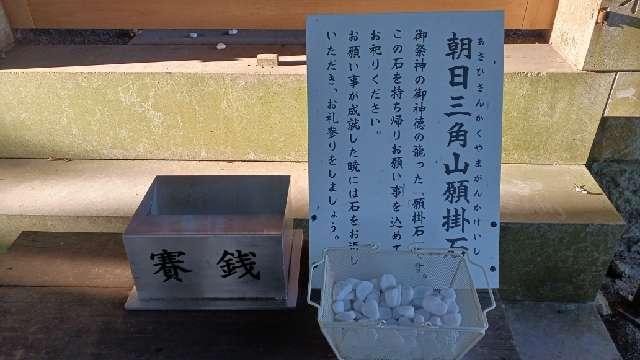 朝日三角山願掛石
あさひさんかくやまがんかけいし
御祭神の御神徳の籠った「願掛石」です。
この石を持ち帰りお願い事を込めて
お祀りください。
お願い事が成就した暁には石をお返し
いただき、お礼参りをしましょう。
賽銭